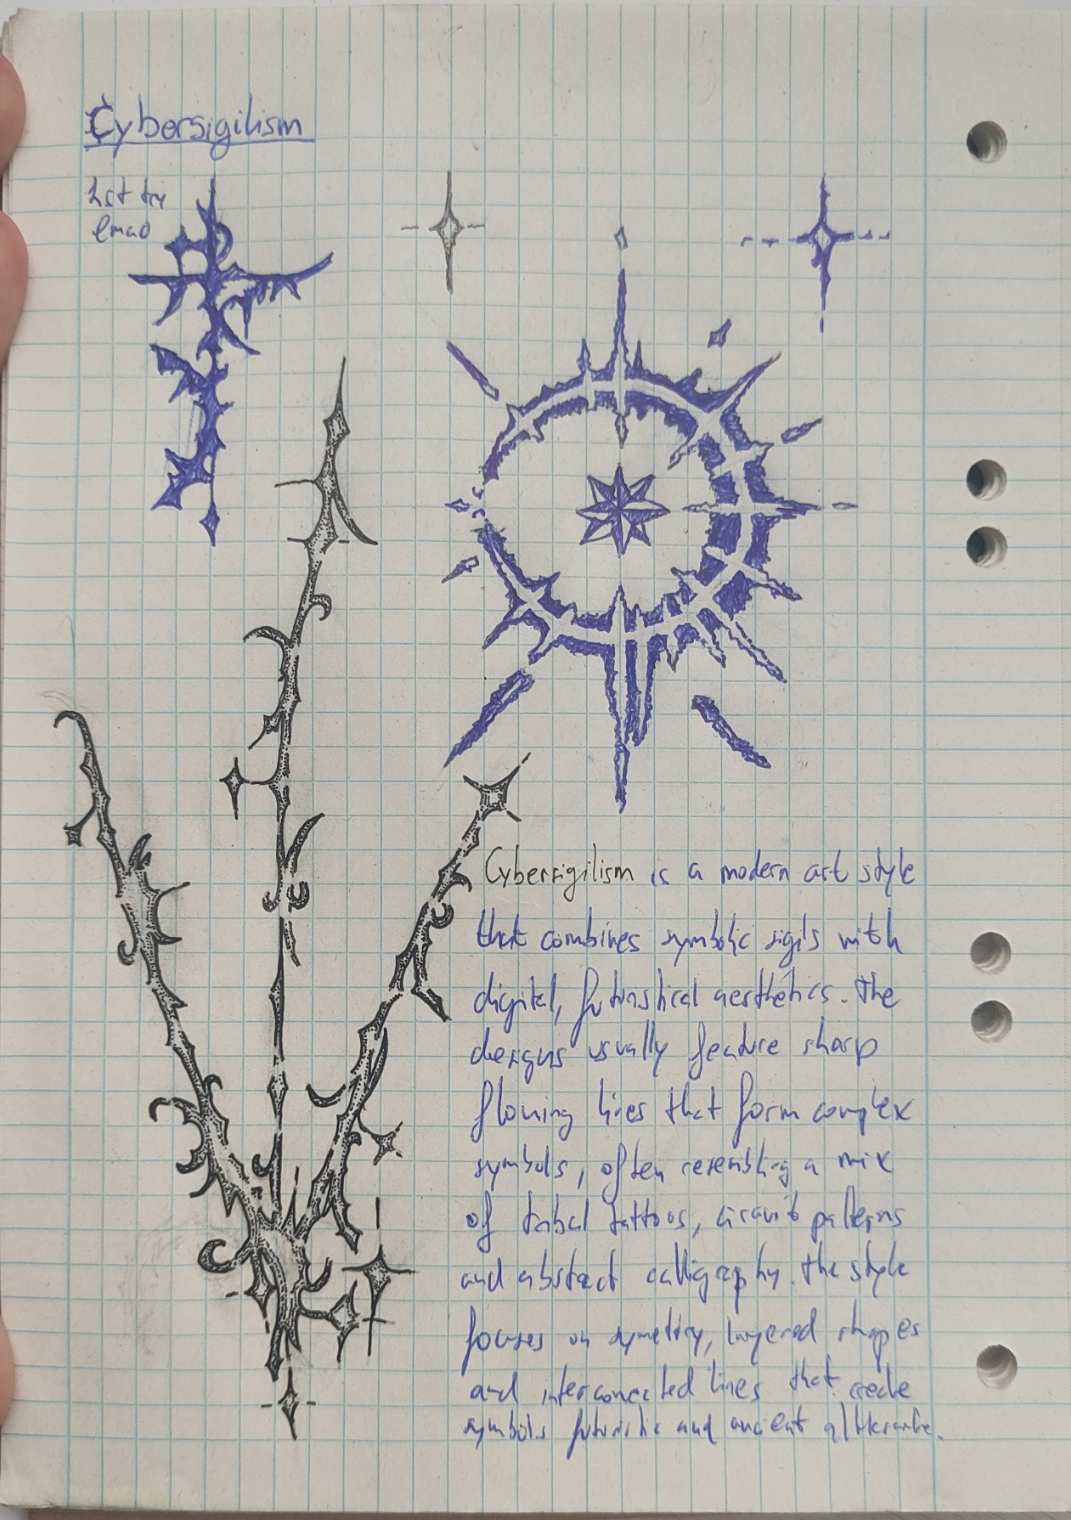 Cybersigilism
1st try
lmao
Cybersigilism is a modern art style
that combines symbolic sigils with
digital, futuristical aesthetics. The
designs usually feature sharp
flowing lines that form complex
symbols, often resembling a mix
of tribal tattoos, circuit patterns
and abstract calligraphy. The style
focuses on symetry, layered shapes
and interconected lines that create
symbols futuristic and ancient